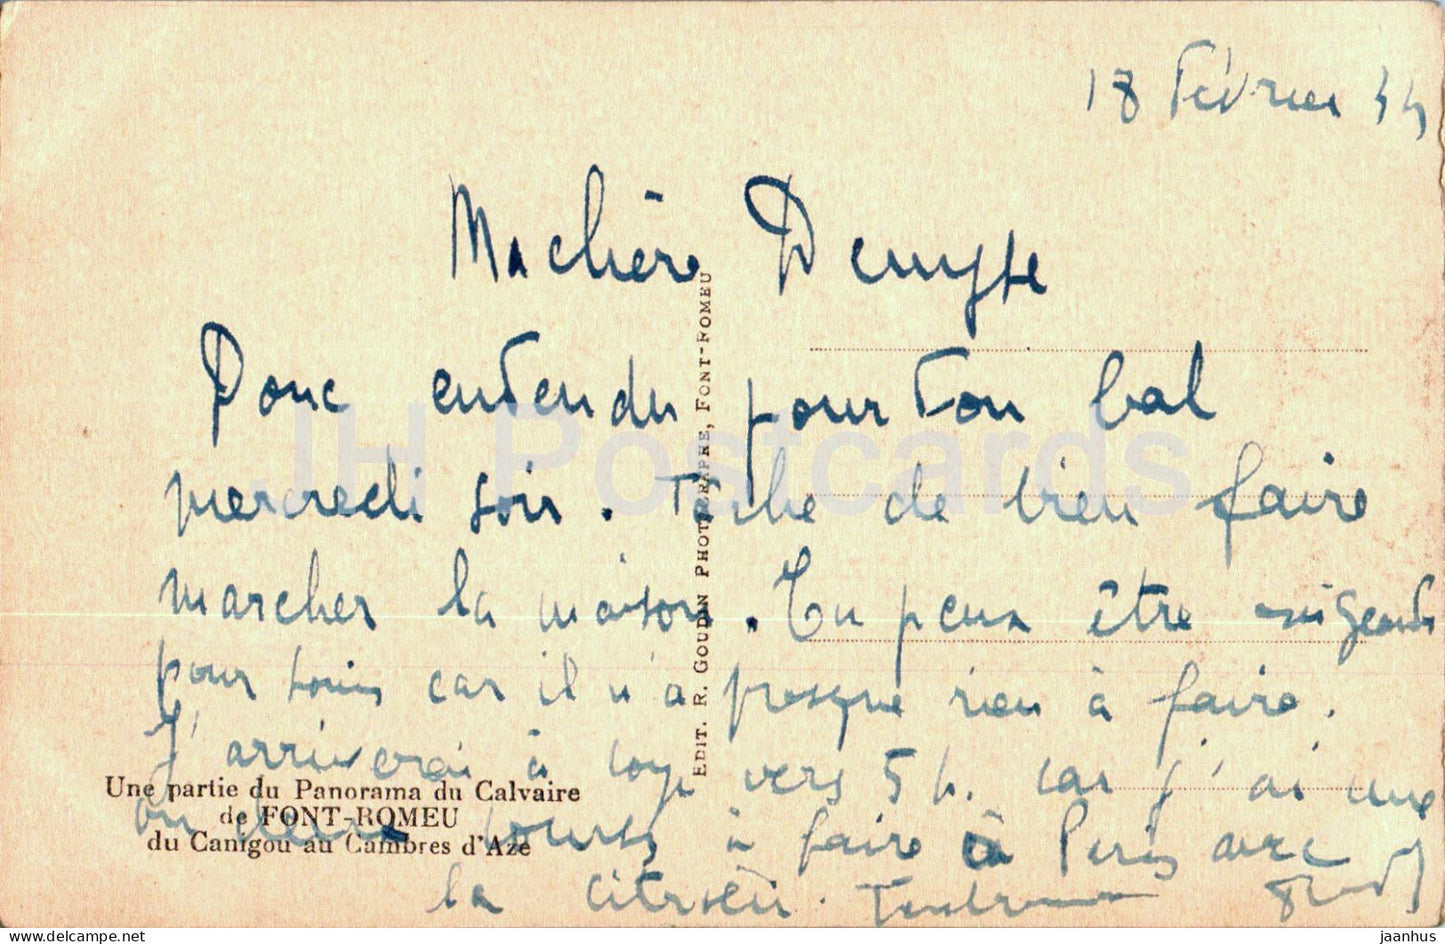 18 Février 44
Ma chère
Donc entendu pour ton bal
mercredi soir. Tâche de bien faire
marcher la maison. Tu peux être exigeante
pour car il n'a presque rien à faire.
J'arriverai à vers 5 h. car j'ai une
ou deux courses à faire à Paris avec
la citroën. Tendrement
EDIT. R. GOUDIN PHOTOGRAPHE, FONT-ROMEU
Une partie du Panorama du Calvaire
de FONT-ROMEU
du Canigou au Cambres d'Aze
JH Postcards
jaanhus
delcampe.net